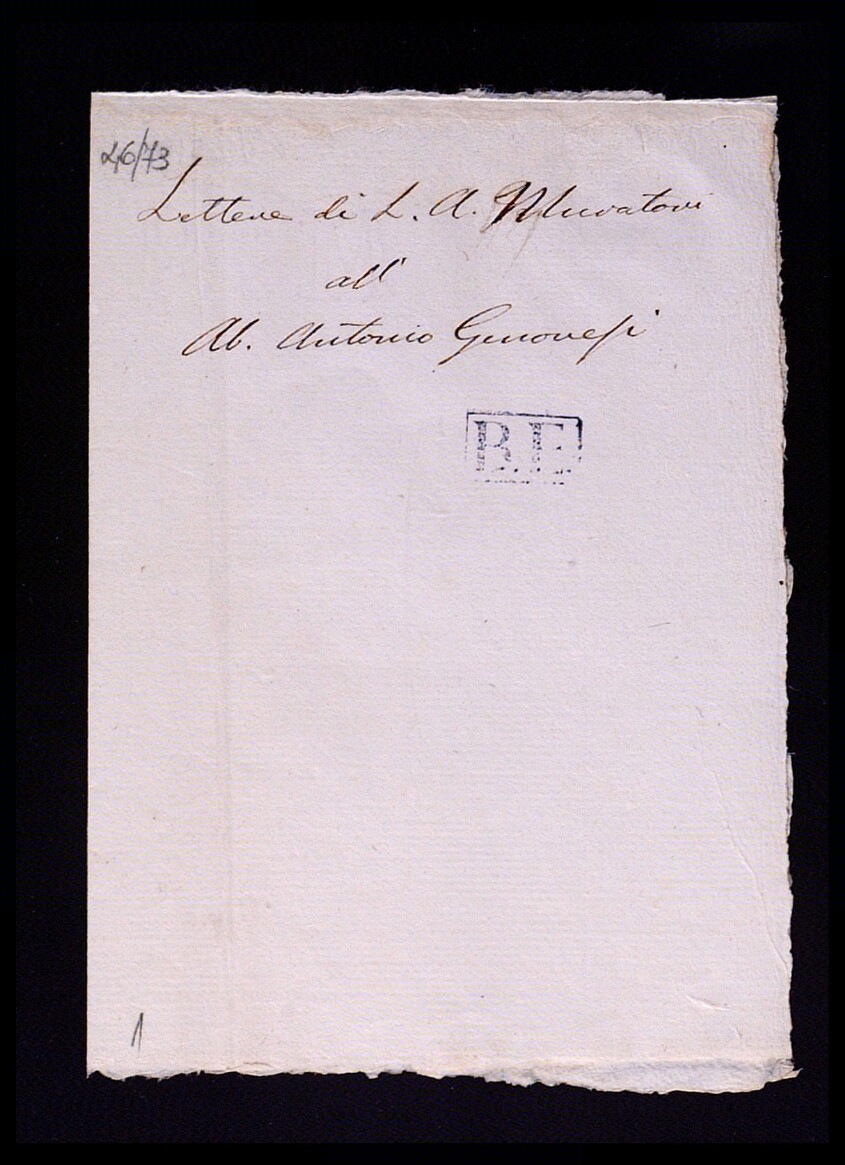 46/73
Lettere di L. A. Muratori
all'
Ab. Antonio Genovesi
B.E
1